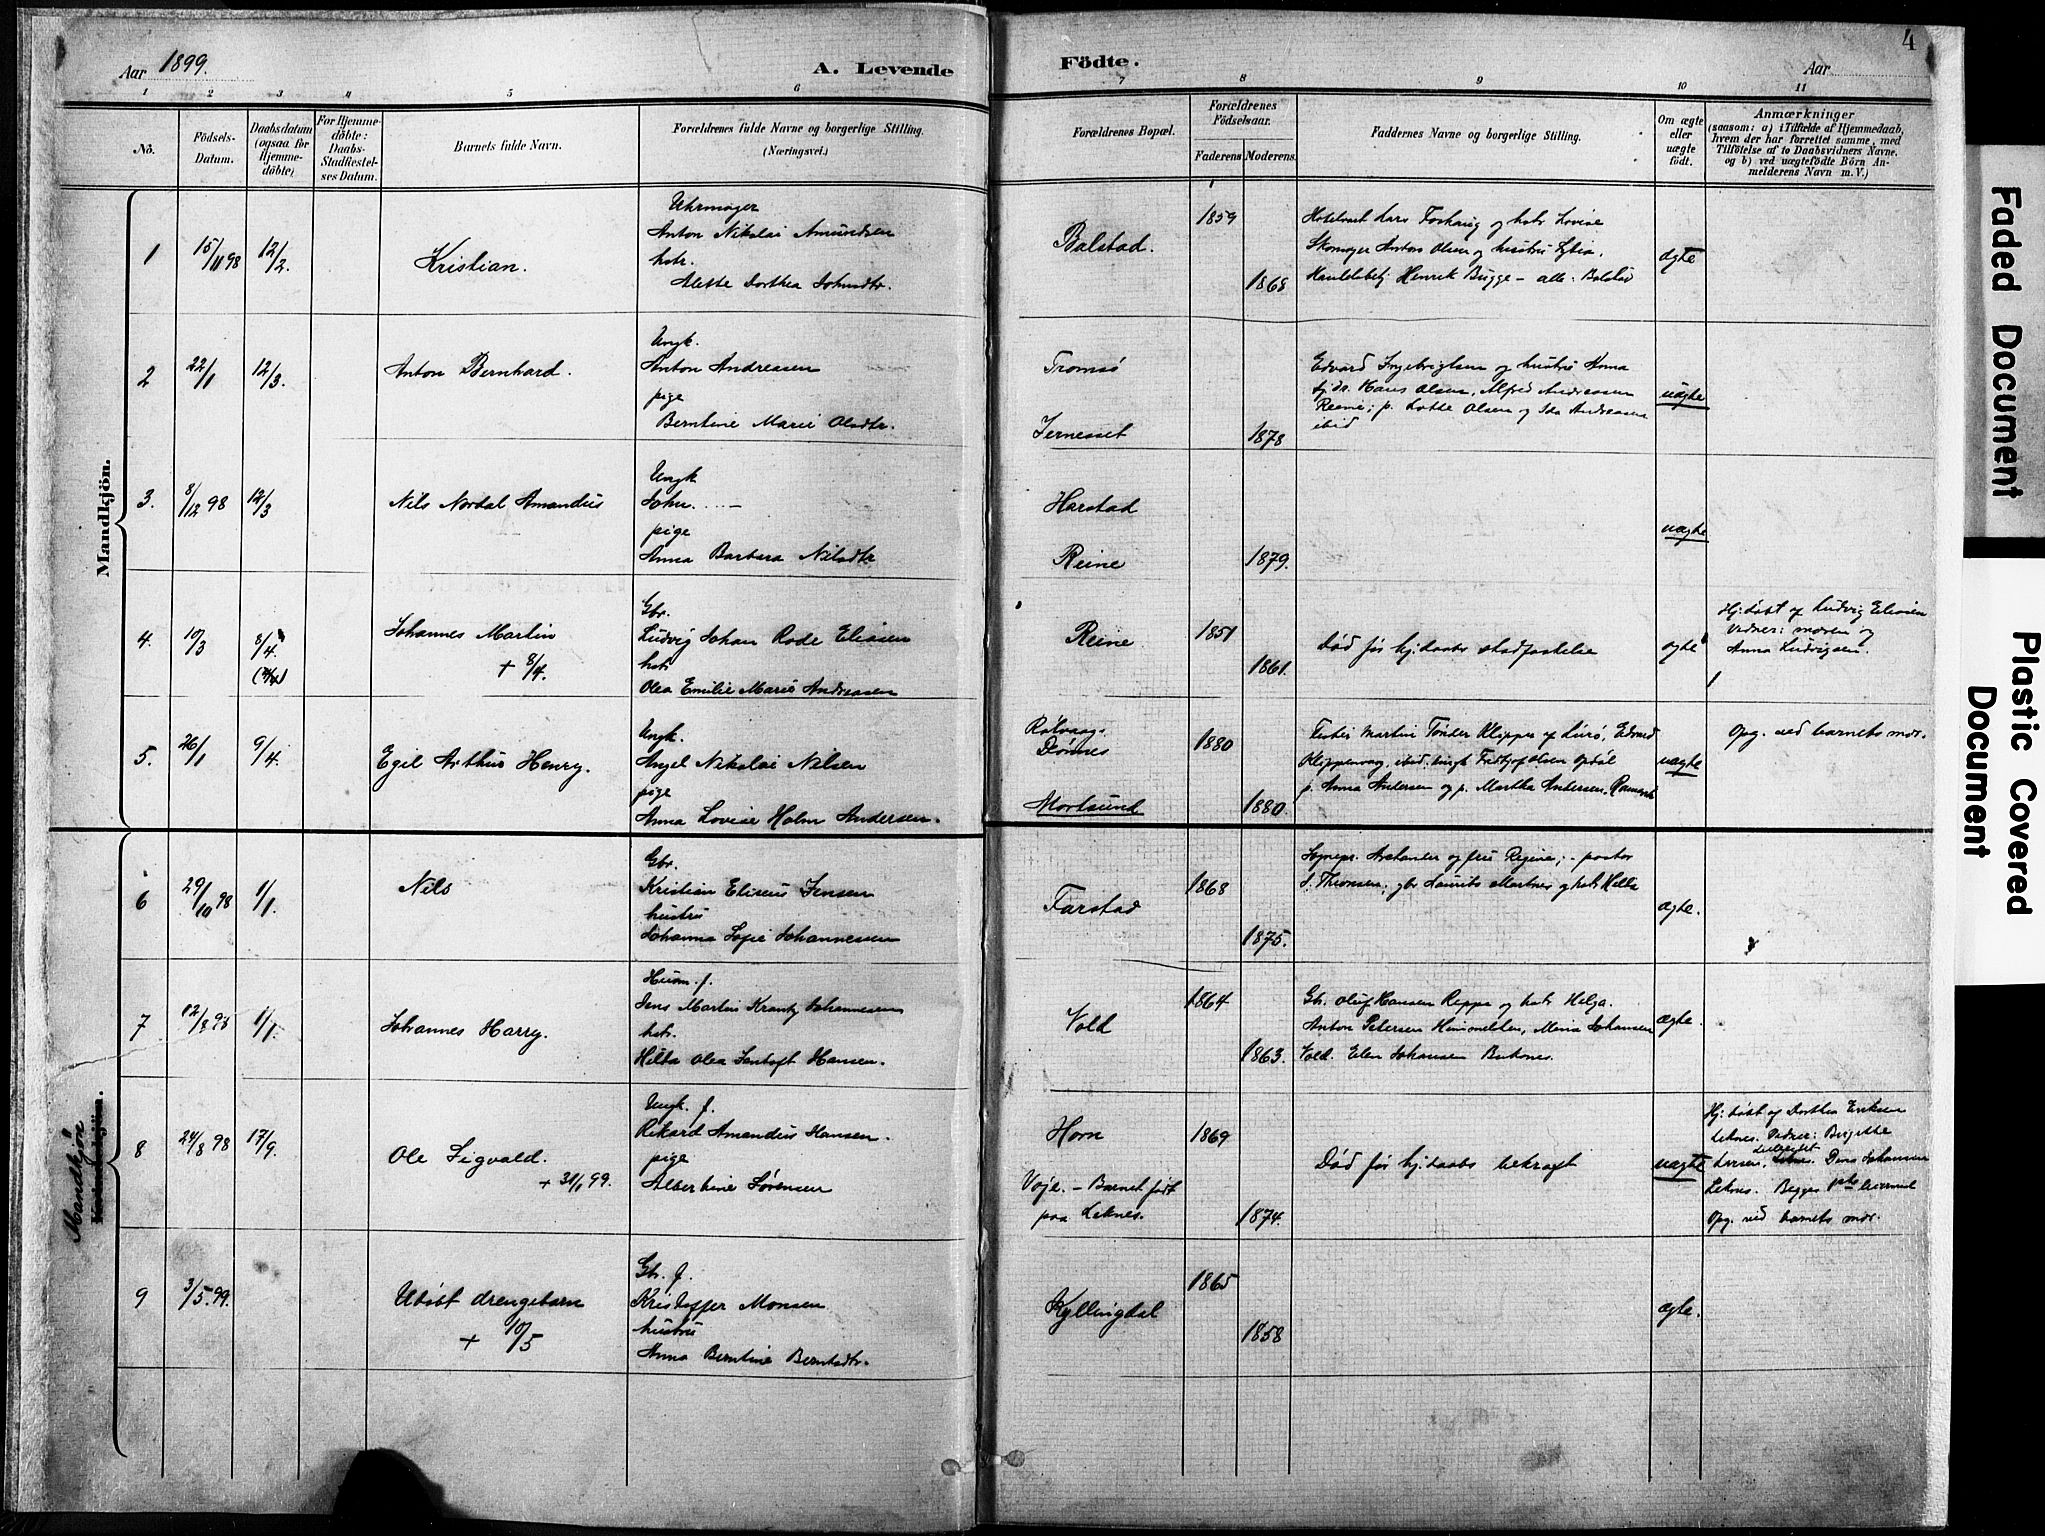 Aar 1899.
A. Levende
Födte.
Aar
4
1 2 3 4 5 6 7 8 9 10 11
No.
Födsels-
Datum.
Daabsdatum
(ogsaa for
Hjemme-
döbte)
For Hjemme-
döbte:
Daabs-
Stadfæstel-
ses Datum.
Barnets fulde Navn.
Forældrenes fulde Navne og borgerlige Stilling.
(Næringsvei.)
Forældrenes Bopæl.
Forældrenes
Födselsaar.
Faderens Moderens.
Faddernes Navne og borgerlige Stilling.
Om ægte
eller
uægte
født.
Anmærkninger
(saasom: a) i Tilfælde af Hjemmedaab,
hvem der har forrettet samme, med
Tilföielse af to Daabsvidners Navne,
og b) ved uægtefödte Börn An-
melderens Navn m. V.)
Mandkjön.
1
15/11 98
12/2.
Kristian.
Uhrmager
Anton Nikolai Amundsen
hstr.
Alette Dorthea
Balstad.
1859
1868
Lars og hstr Lovise
Skomager Anton Olsen og hustru
Henrik Bugge - alle Balstad
ægte
2
22/1
12/3.
Anton Bernhard.
Ungk.
Anton Andreassen
pige
Berntine Marie Olsdtr.
Tromsö
Jernesset
1878
Edvard Ingebrigtsen og hustru Anna
Hans Olsen, Alfred Andreassen
Reine; p. Lotte Olsen og Ida Andreassen
ibid
uægte
3.
8/12 98
12/3
Nils Nordal Amandus
Ungk
John.....—
pige
Anna Barbara Nilsdtr
Harstad
Reine
1879.
uægte
4.
10/3
8/4.
Johannes Martin
+ 8/4.
Gbr.
Ludvig Johan Rode Eliasen
hstr
Olea Emilie Marie Andreasen
Reine
1851
1861.
Död för hj:daabs stadfæstelse
ægte
Hj: döbt af Ludvig Eliasen
Vidner: moren og
Anna Ludvigsen.
5.
26/1
9/4.
Egil Arthur Henry.
Ungk.
Angel Nikolai Nilsen
pige
Anna Lovise Holm Andersen.
Dönnes
Mortsund
1880
1880.
Martin Tönder Klippen af Lurö, Edvard
ibid. ungk Fridtjof Olsen Opdöl
p. Anna Andersen og p. Martha Andersen,
uægte
Opg. ved barnets mor.
Mandkjøn
6
29/10 98
1/1.
Nils
Gbr.
Kristian Eliseus Jensen
hustru
Johanna Sofie Johannessen
Farstad
1868
1875.
Sognepr. og fru Regine; - pastor
gbr Laurits Martnes og hstr
ægte.
7
12/8 98
1/1.
Johannes Harry.
Husm. f.
Jens Martin Krantz Johannesen
hstr.
Hilda Olea Hansen.
Vold
1864
1863.
Gbr. Oluf Hansen Reppe og hstr Helga.
Anton Petersen Maria Johansen
Vold. Johansen
ægte.
8
24/8 98
17/9.
Ole Sigvald.
+ 31/1 99.
Ungk. f.
Rikard Amandus Hansen.
pige
Albertine Sørensen
Horn
Voje. - Barnet født
paa Leknes.
1869
1874.
Död för hj:daabs bekræft
uægte
Hj: döbt af Dorthea Eriksen
Leknes. Vidner: Birgitte
Larsen, Johansen
Leknes. Begges
Opg. ved barnets mor.
9
3/5.99.
Udöbt drengebarn
+ 10/5
Gbr. f.
Kristoffer Monsen
hustru
Anna Berntine Berntsdtr.
Kyllingdal
1865
1858
ægte.
Faded Document
Plastic Covered
Document